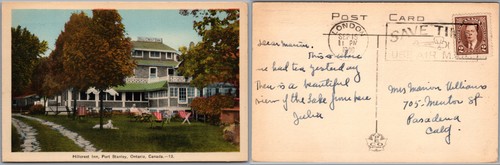 Hillcrest Inn, Port Stanley, Ontario, Canada.—15
POST CARD
LONDON
11 PM
SAVE TIME
USE AIR MAIL
Dear Marion,
This is where
we had tea yesterday
There is a beautiful
view of the Lake from here
Julia
Mrs Marion Williams
705 - Mentor St
Pasadena
Calif.